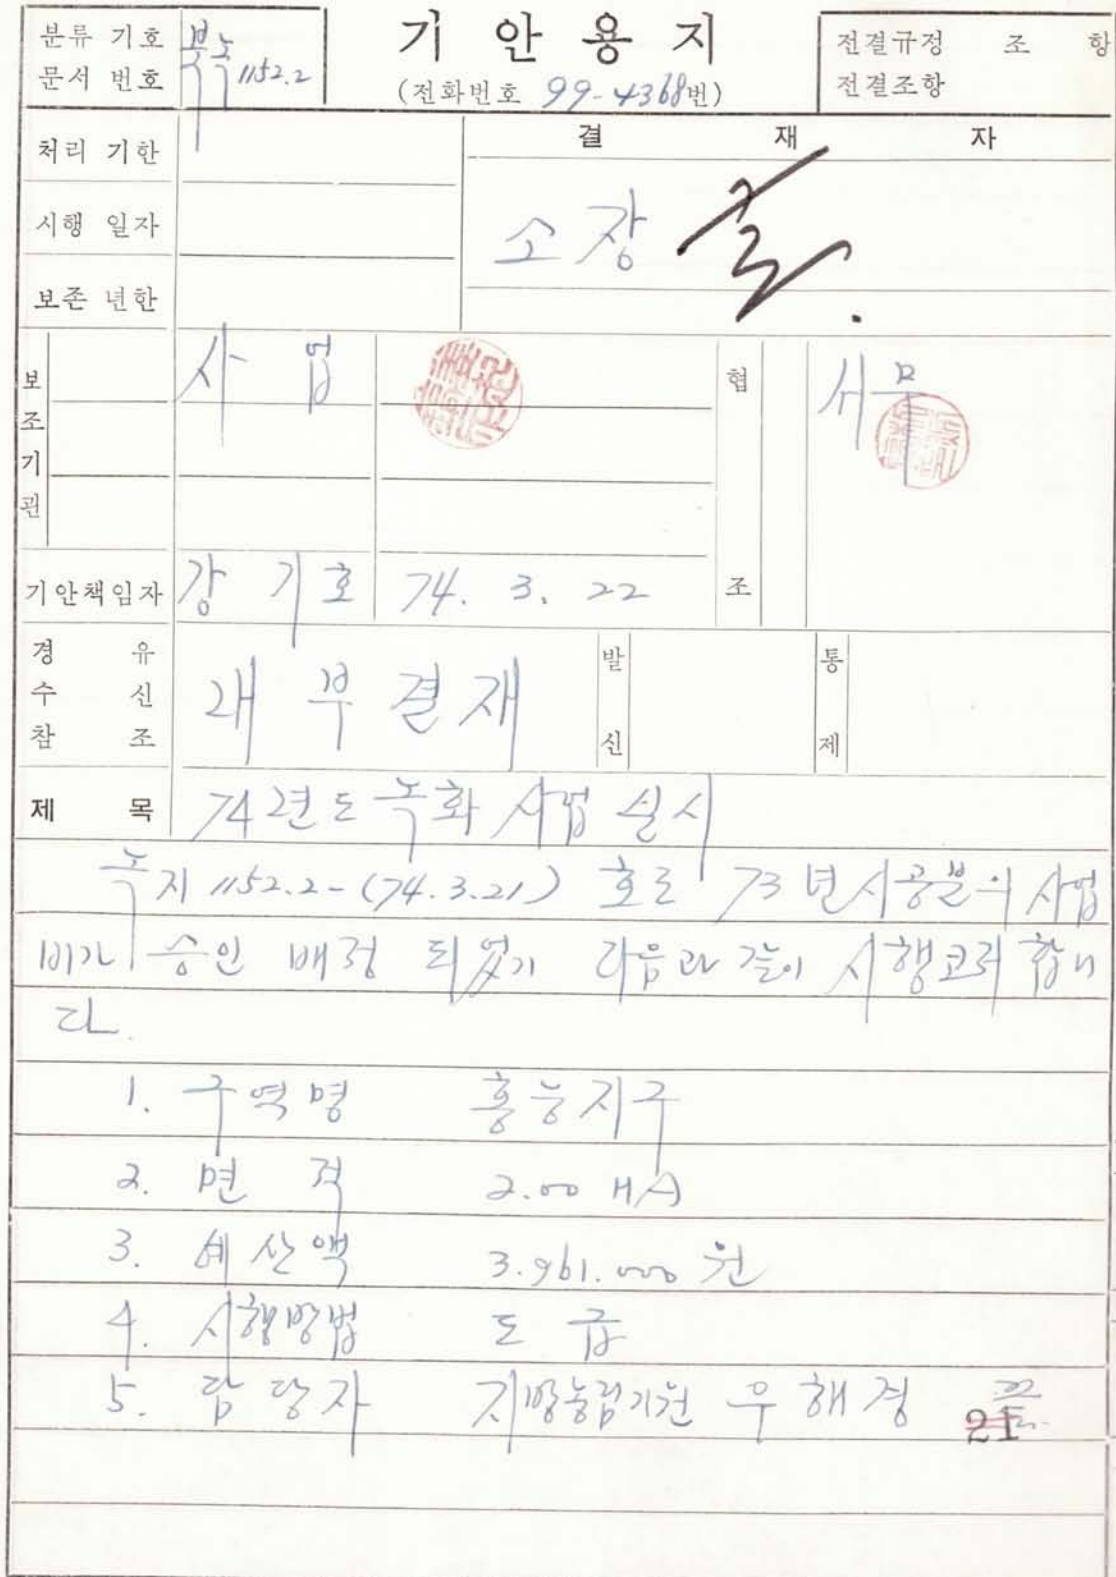 분류 기호
문서 번호
북녹 1152.2
기 안 용 지
(전화번호 99-4368번)
전결규정 조 항
전결조항
처리 기한
시행 일자
보존 년한
결 재 자
소장
보조기관
사 업
협조
서무
기안책임자
강 기 호
74. 3. 22
경 유
수 신
참 조
내부결재
발신
통제
제 목
74년도 녹화 사업 실시
녹지 1152.2-(74.3.21) 호로 73년 시공분의 사업
비가 승인 배정 되었기 다음과 같이 시행코저 합니
다.
1. 구역명 홍능지구
2. 면 적 2.00 HA
3. 예산액 3.961.000 원
4. 시행방법 도 급
5. 담당자 지방농림기원 우해경
21